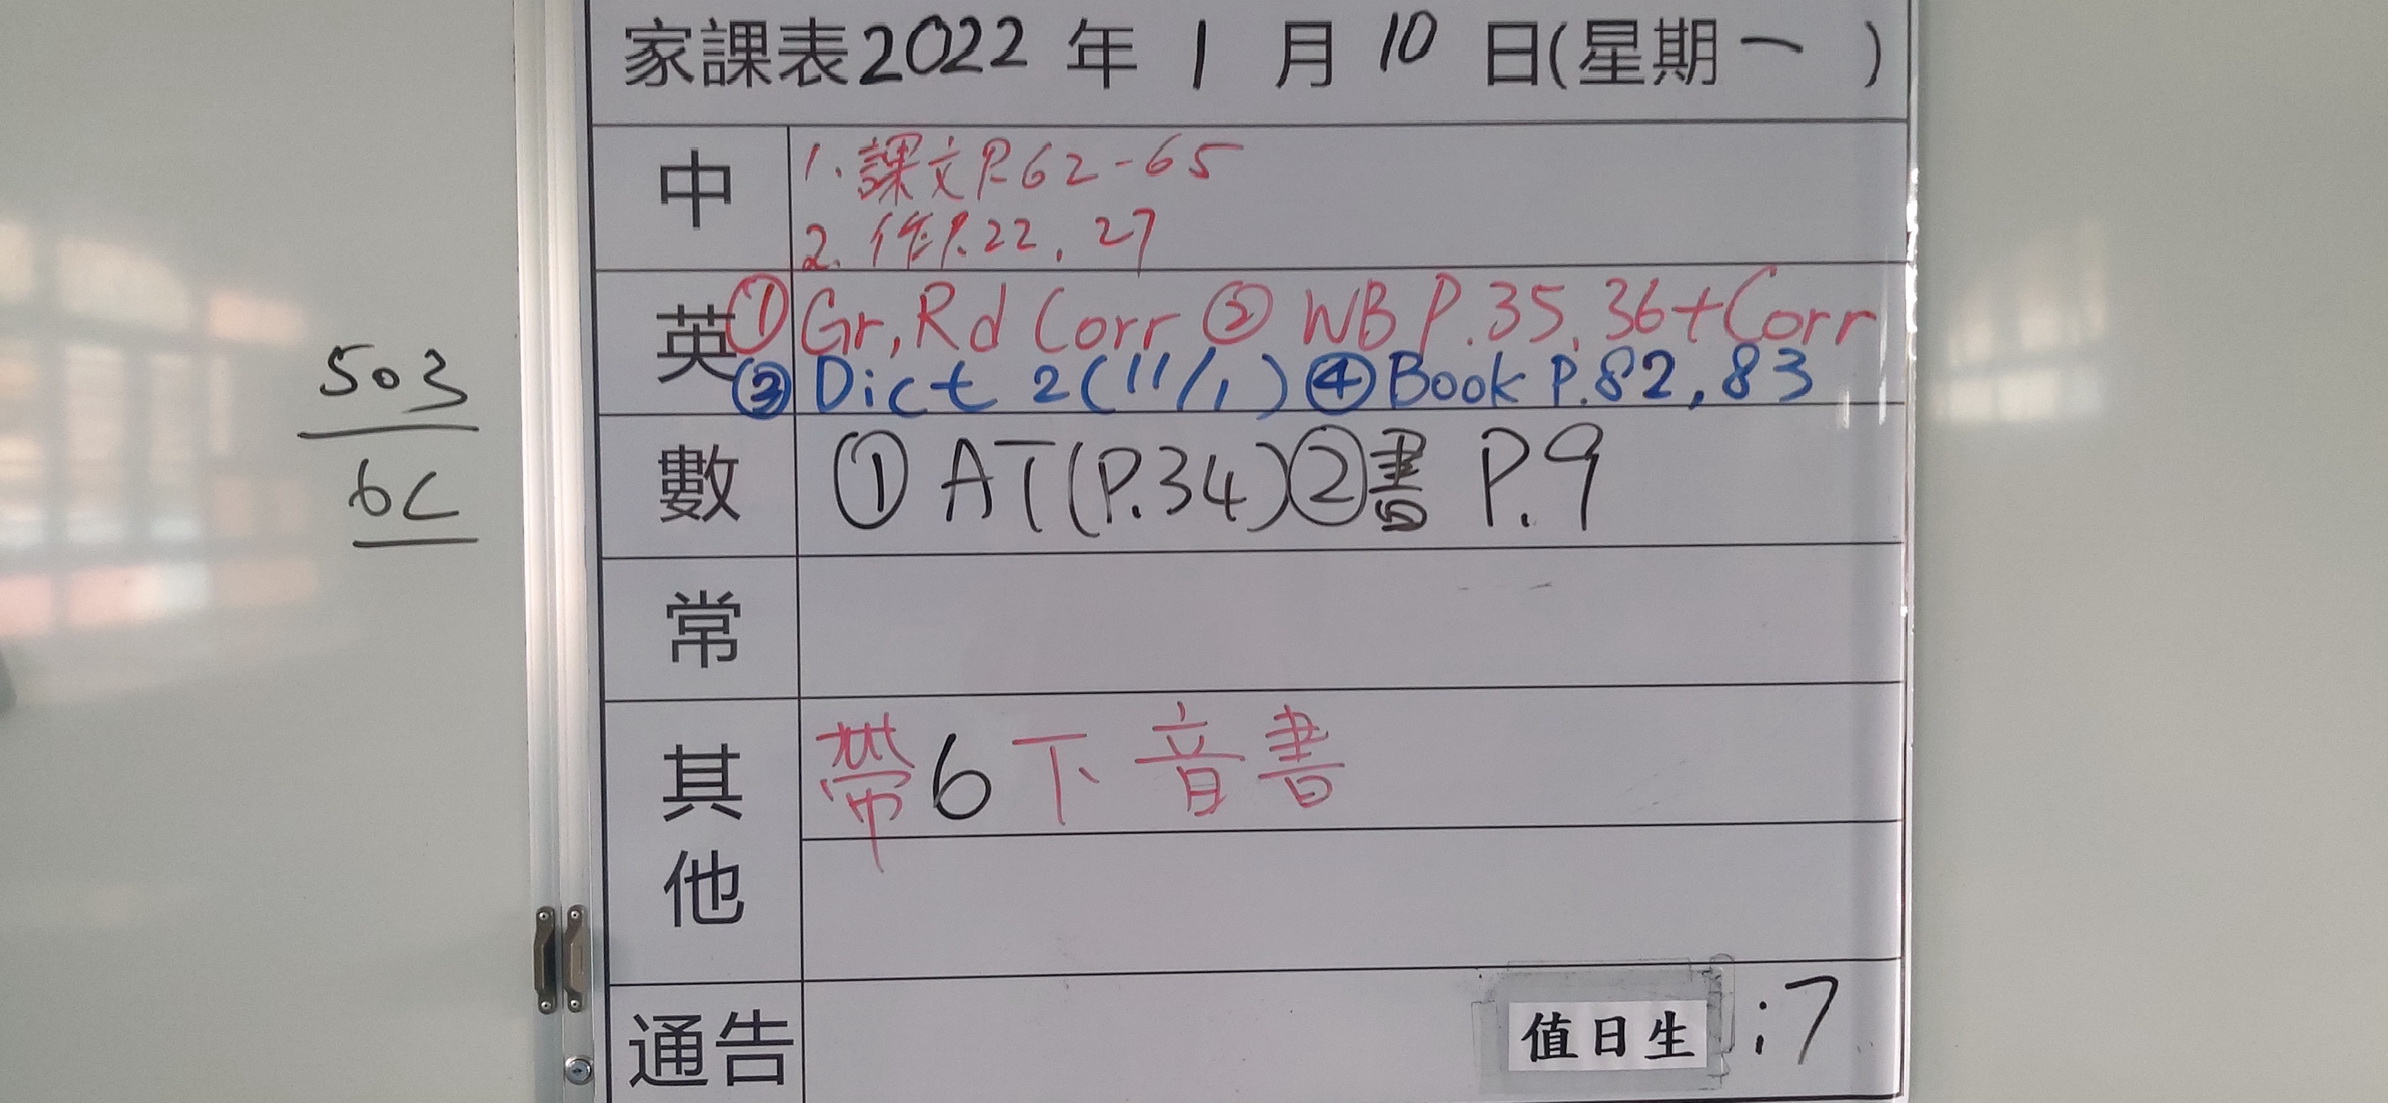 家課表2022年1月10日(星期一)
中
1. 課文P.62-65
2. 作P.22, 27
英
① Gr, Rd Corr ② WB P.35, 36+Corr
③ Dict 2 (11/1) ④ Book P.82, 83
數
① AT (P.34) ② 書 P.9
常
其他
帶6下音書
通告
值日生:7
503
6C